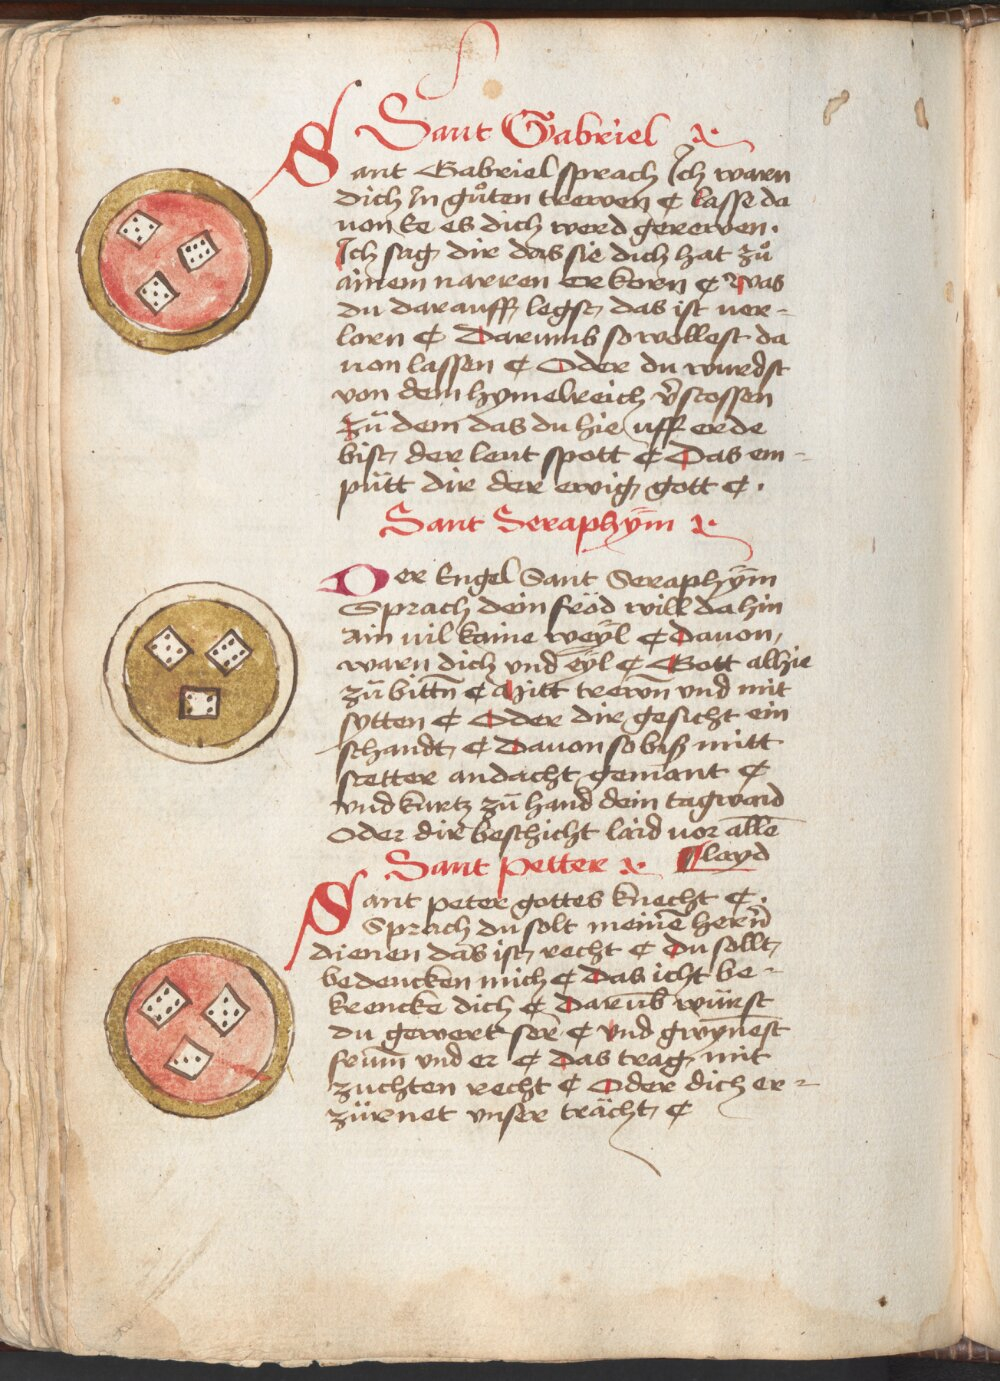 Sant Gabriel
Sant Gabriel sprach Ich warn
dich In gůten trewen ¶ lasse da
uon Ee es dich werd gerewen ·
Ich sag dir das sie dich hat zů
ainem narren erkorn ¶ Was
du darauff legst das ist uer-
lorn ¶ Darumb so wöllest da
uon lassen ¶ Oder du wurdst
von dem hymelreich v̄stossen
zů dem das du hie uff erde
bist der leut spott ¶ Das em-
pütt dir der ewig gott ¶ ·
Sant Seraphӱm
Der Engel Sant Seraphӱm
Sprach dein fröd will da hin
ain uil kaine weӱl ¶ Dauon
warn dich vnd eӱl ¶ Gott alhie
zů bittn̄ ¶ Mitt trewn̄ vnd mit
sytten ¶ Oder dir gesicht ein
schandt ¶ Dauon so biß mitt
stetter andacht gemant ¶
vnd kurtz zů hand dein tagwaid
Oder dir beschicht laid uor allē
layd
Sant Petter
Sant peter gottes knecht ¶ ·
Sprach du solt meinē hern̄
dienen das ist recht ¶ Du sollt
bedencken mich ¶ Das icht be-
krencke dich ¶ Darūb würst
du gewert ser ¶ Vnd gwӱnest
frum̄ vnd er ¶ Das trag mit
zuchten recht ¶ Oder dich er-
zürnet vnser trächt ¶